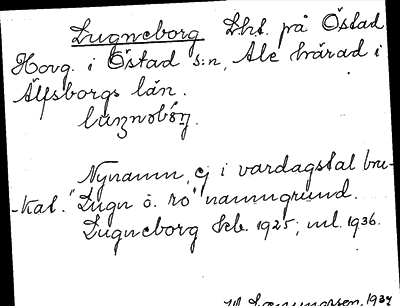 Lugneborg Lht. på Östad
Hovg. i Östad s:n, Ale härad i
Älfsborgs län.
Nynamn, ej i vardagstal bru-
kat. "Lugn o. ro" namngrund.
Lugneborg Skb. 1925; ml. 1936.
1937